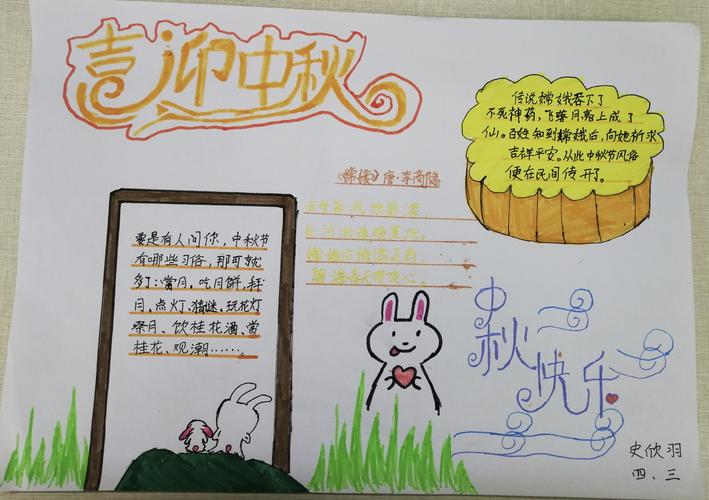 喜迎中秋
传说嫦娥吞下了
不死神药，飞升月亮上成了
仙。百姓知到嫦娥后，向她祈求
吉祥平安。从此中秋节风俗
便在民间传开了。
《嫦娥》唐·李商隐
云母屏风烛影深，
长河渐落晓星沉。
嫦娥应悔偷灵药，
碧海青天夜夜心。
要是有人问你，中秋节
有哪些习俗，那可就
多了：赏月、吃月饼、拜
月、点灯、猜谜、玩花灯
祭月、饮桂花酒、赏
桂花、观潮……。
中秋快乐
史欣羽
四、三